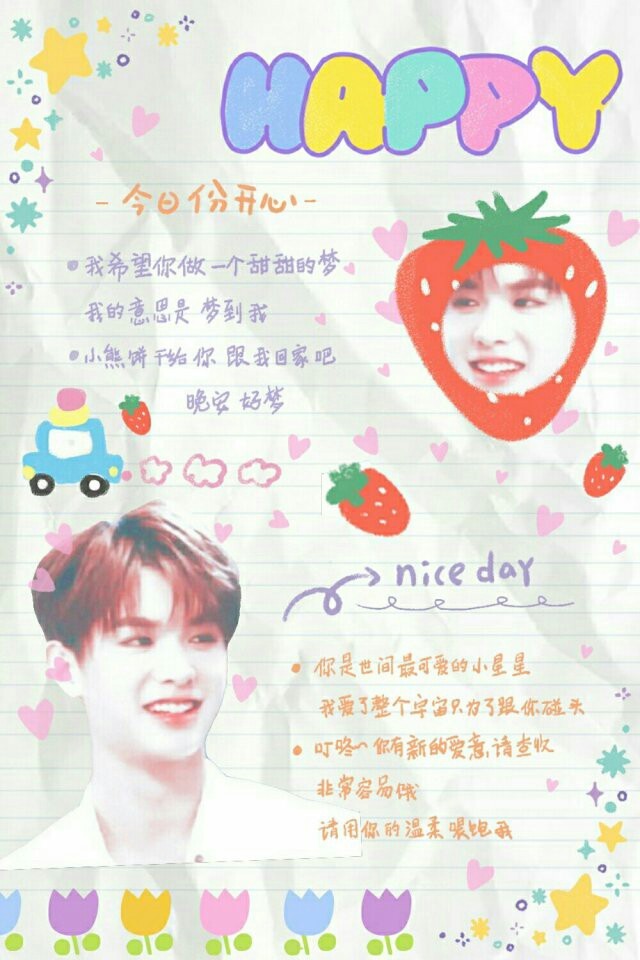 HAPPY
- 今日份开心 -
• 我希望你做一个甜甜的梦
我的意思是 梦到我
• 小熊饼干给你 跟我回家吧
晚安 好梦
nice day
• 你是世间最可爱的小星星
我爱了整个宇宙只为了跟你碰头
• 叮咚~ 你有新的爱意,请查收
非常容易饿
请用你的温柔喂饱我